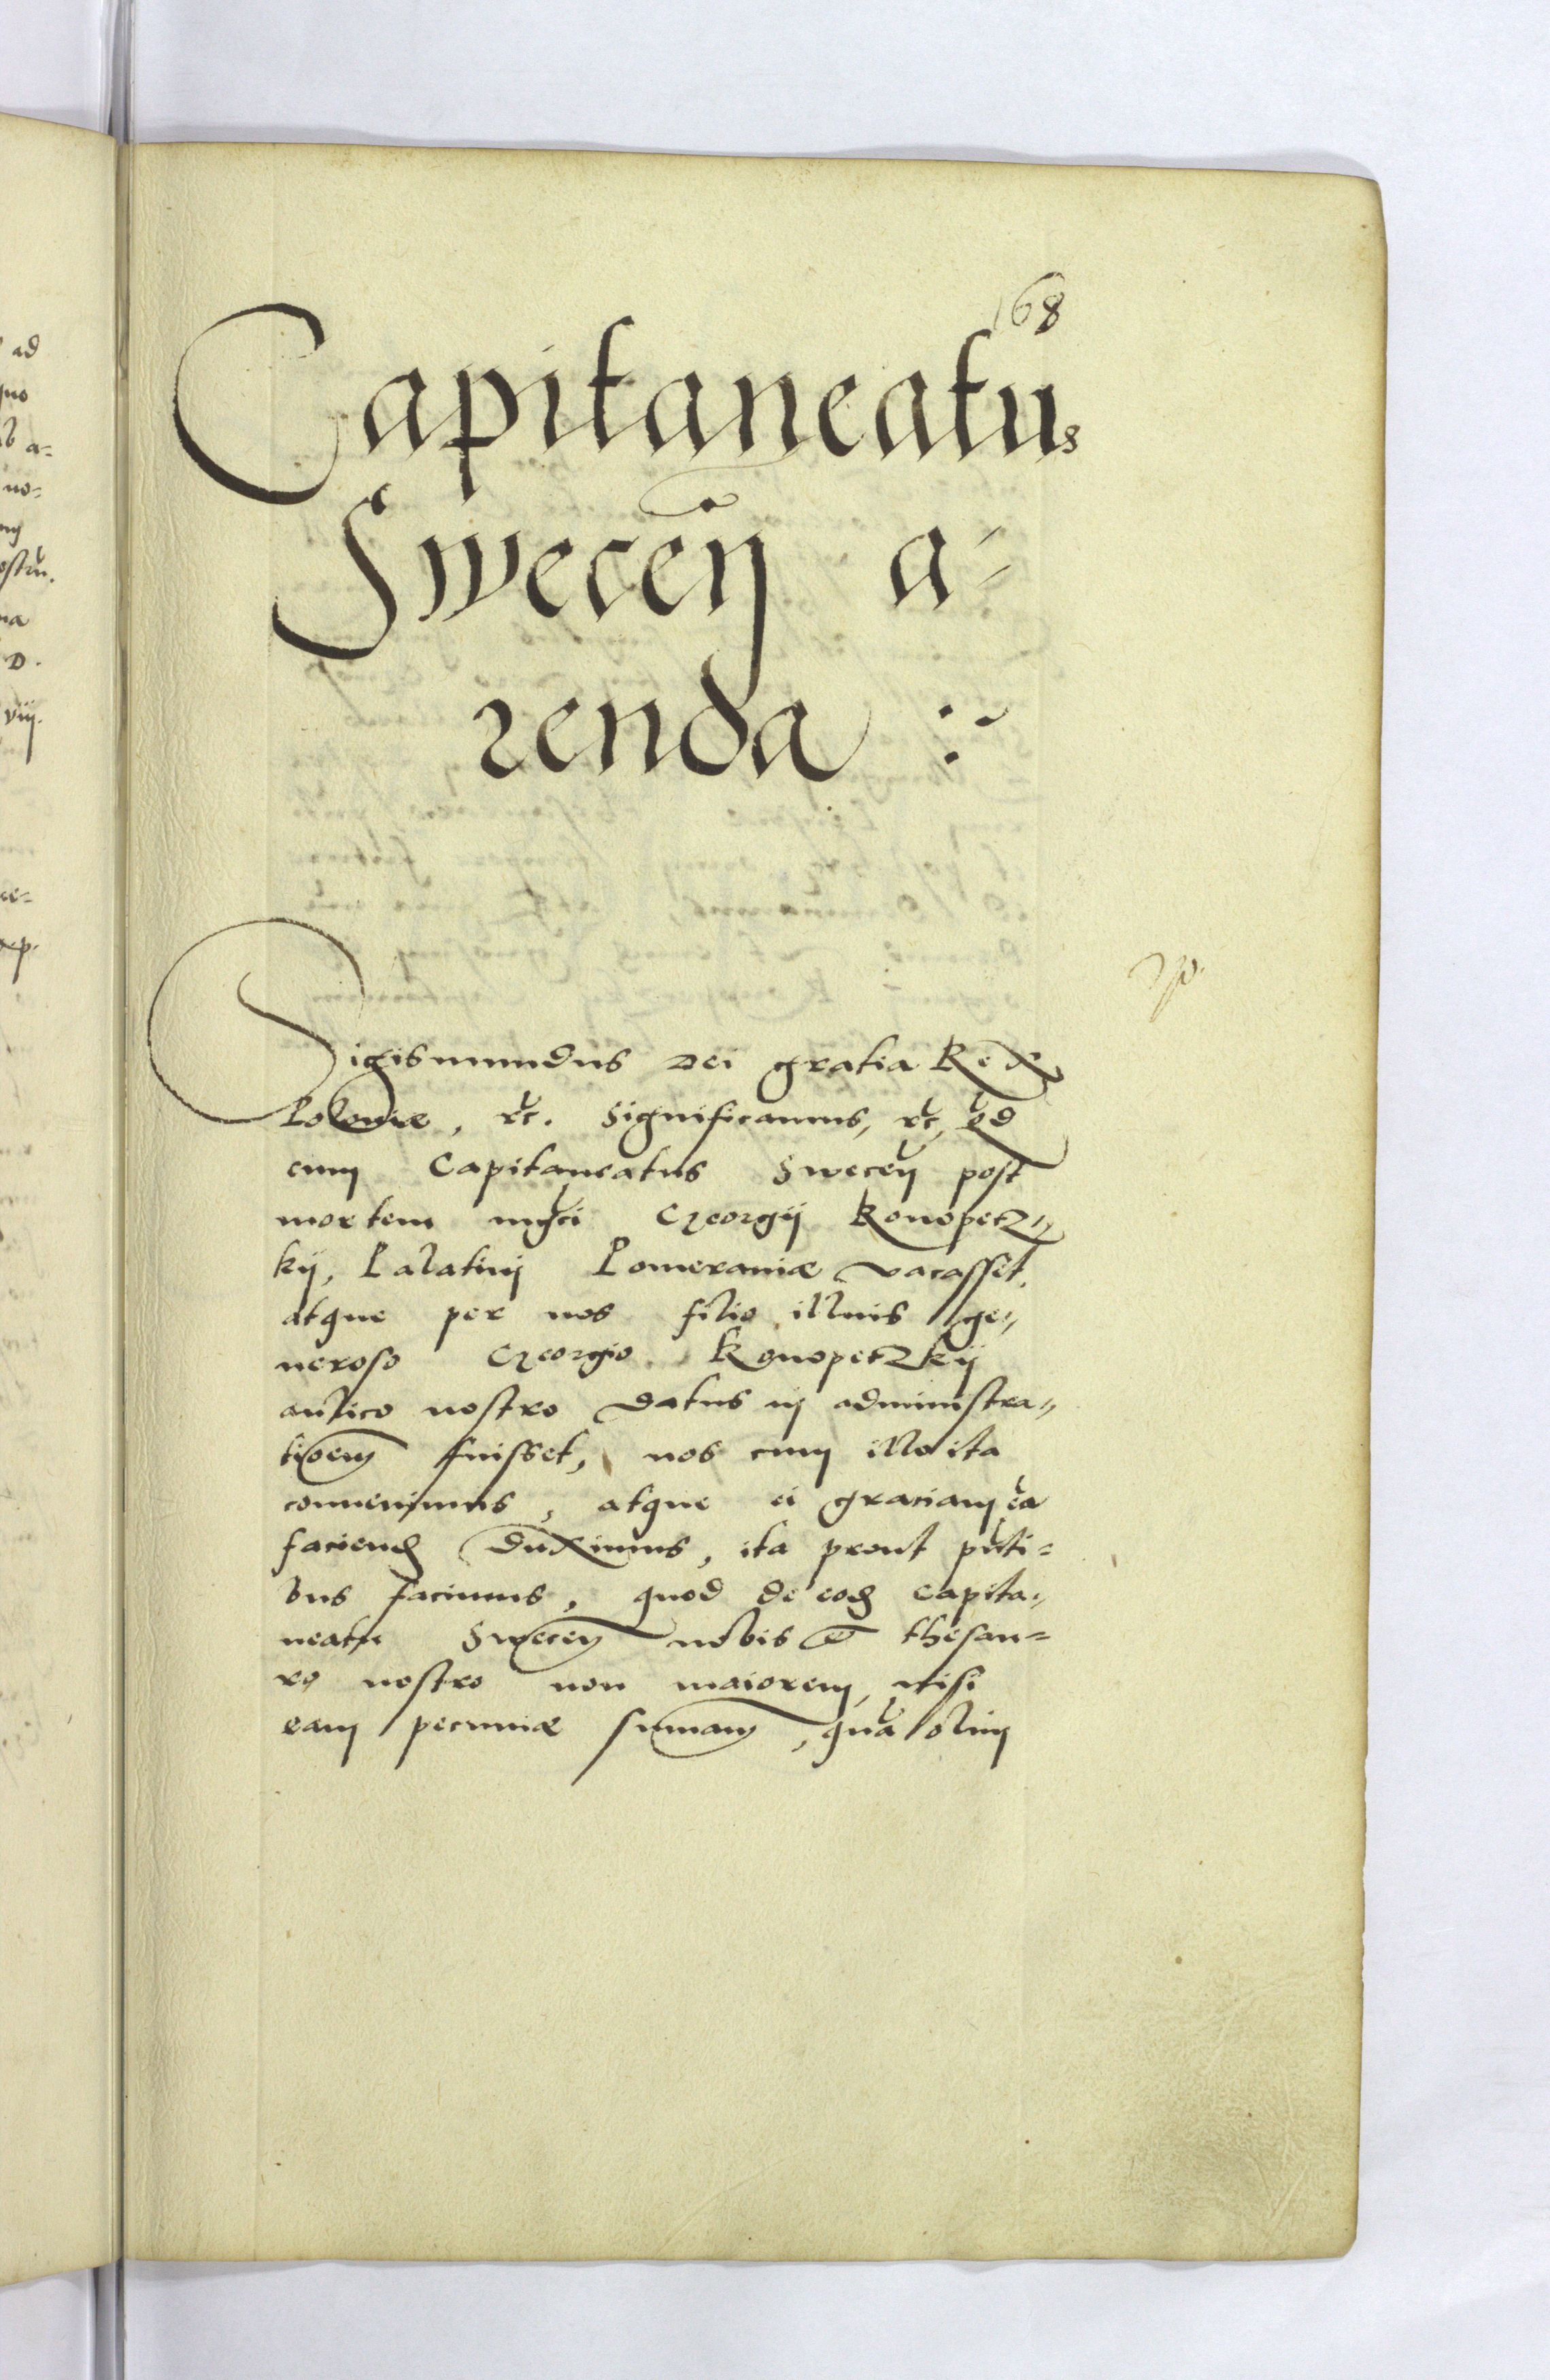 168
Capitaneatus
Swecen̄ a-
renda :~
Sigismundus Dei gratia Rex
Poloniæ, etc. Significamus, etc, qd
cum Capitaneatus Swecen̄ post
mortem mgci Georgij Konopetz„
kij, Palatini Pomeraniæ vacasset,
atque per nos filio illius ge„
neroso Georgio Konopetzkij
aulico nostro datus in administra„
tioem fuisset, nos cum illo ita
convenimus, atque ei graciam eā
faciend duximus, ita prout pn̄ti=
bus facimus, quod de eod capita„
neatu Swecen̄ nobis et thesau=
ro nostro non maiorem, nisi
eam pecuniæ sumam, quā olim
ad
quo
a=
no=
ostrū.
D.
viij.